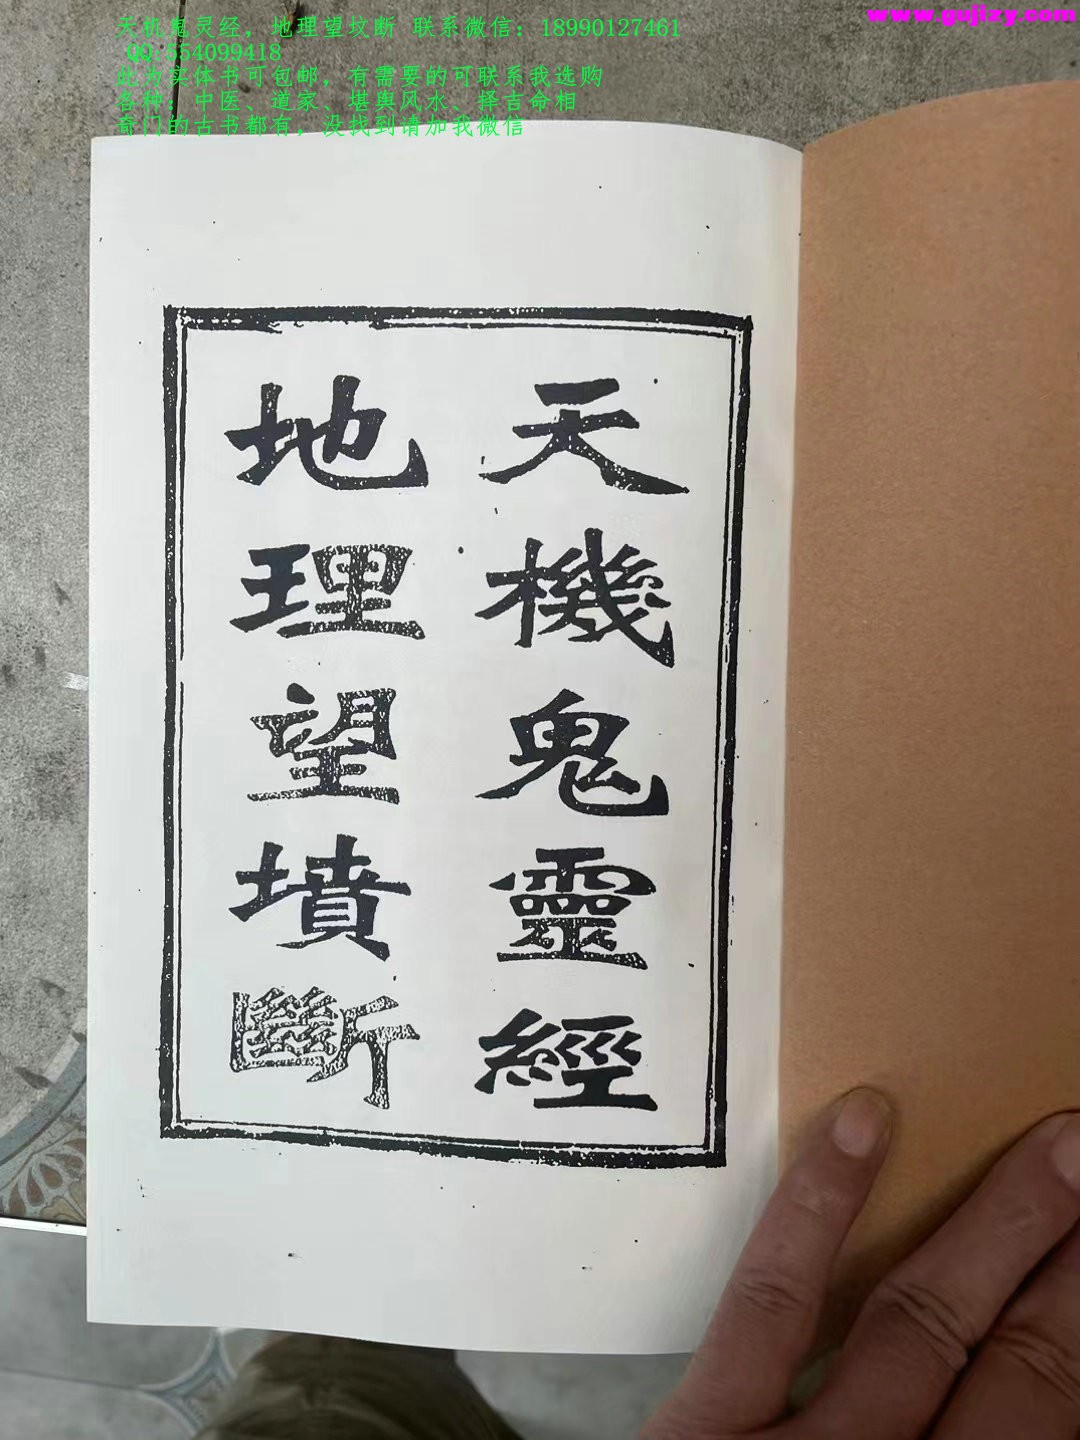 天机鬼灵经，地理望坟断 联系微信：18990127461
QQ:554099418
此为实体书可包邮，有需要的可联系我选购
各种：中医、道家、堪舆风水、择吉命相
奇门的古书都有，没找到请加我微信
www.gujizy.com
天機鬼靈經
地理望墳斷